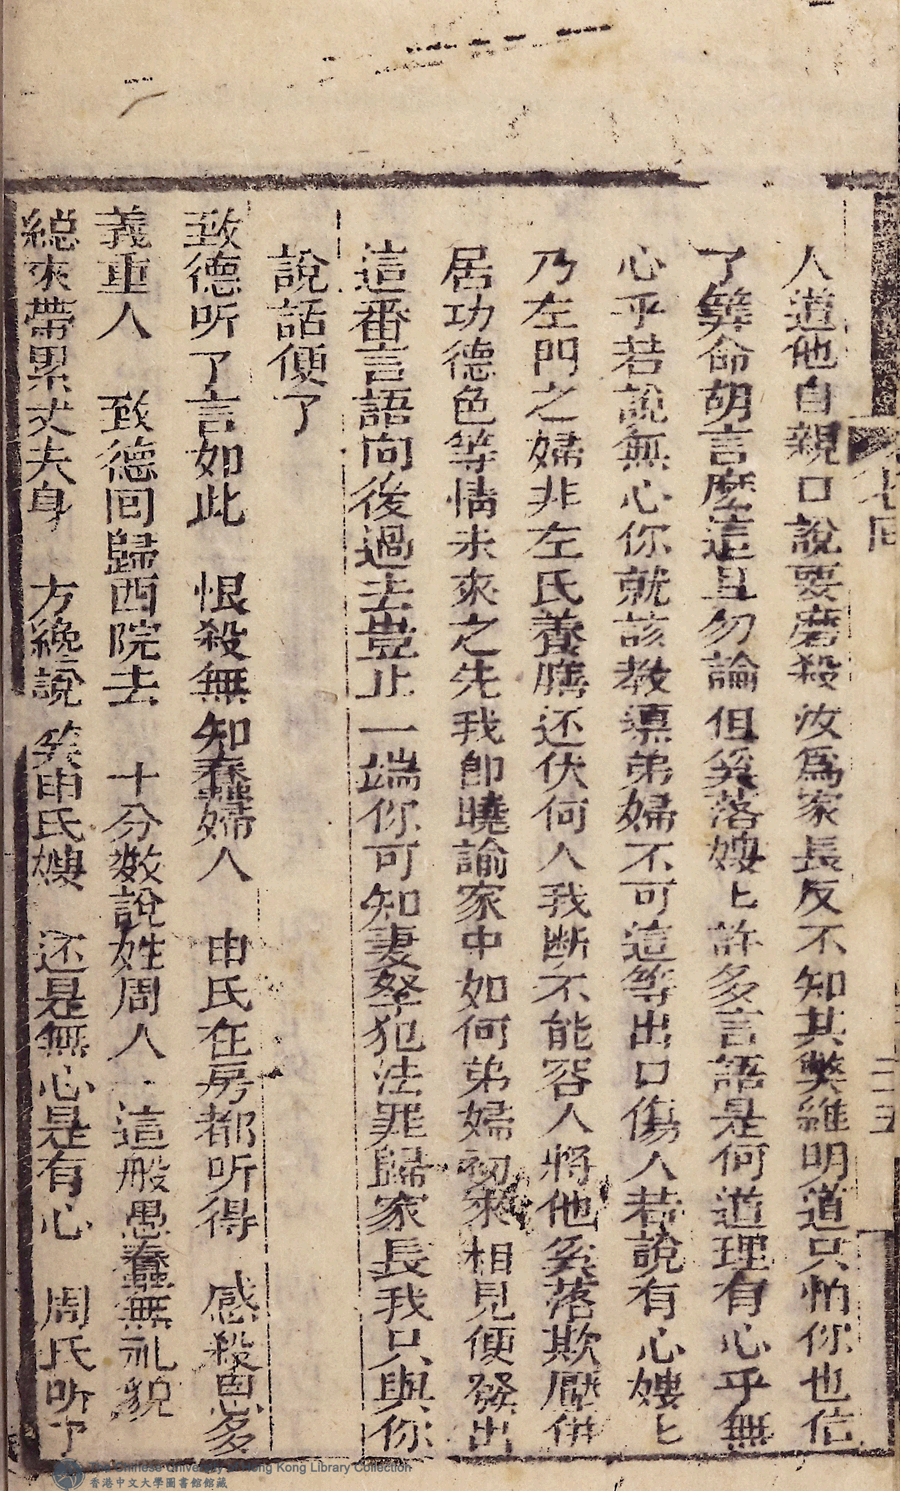 人道他自親口說要磨殺汝為家長反不知其獘維明道只怕你也信
了獘命胡言麽這且勿論但奚落嫂〻許多言語是何道理有心乎無
心乎若說無心你就該教導弟婦不可這等出口傷人若說有心嫂〻
乃左門之婦非左氏養膳还伏何人我断不能容人將他奚落欺壓併
居功德色等情未來之先我卽曉諭家中如何弟婦初來相見便發出
這番言語向後過去豈止一端你可知妻孥犯法罪歸家長我只與你
說話便了
致德听了言如此　恨殺無知蠢婦人　申氏在房都听得　感殺恩多
義重人　致德囘歸西院去　十分数說姓周人　這般愚蠢無礼貌
縂來帶累丈夫身　方纔說奚申氏嫂　还是無心是有心　周氏听了
七囘
二十五
香港中文大學圖書館館藏
The Chinese University of Hong Kong Library Collection